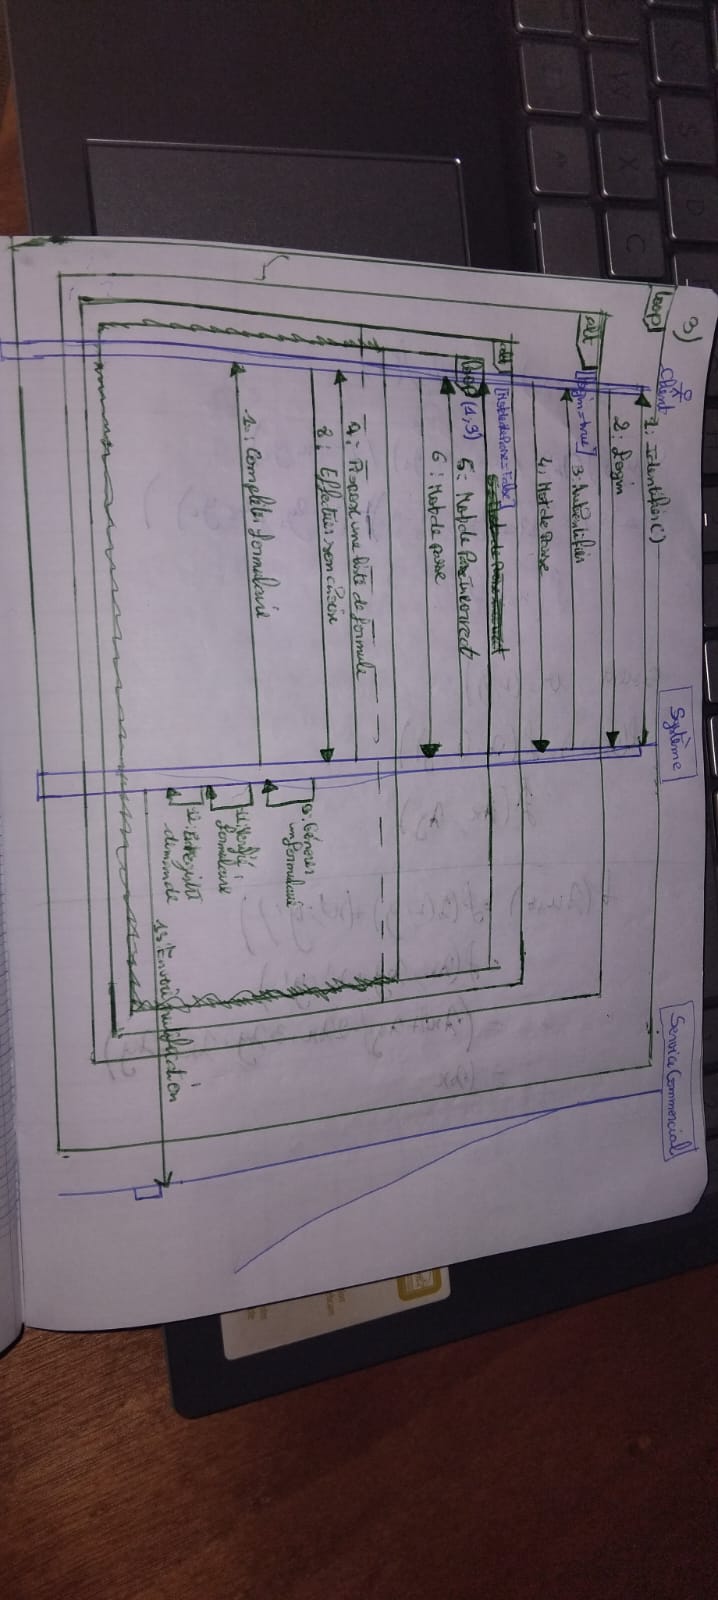 3)
loop
Client
Système
Service Commercial
1: Identifier()
2: Login
alt
[login=true]
3: Autentifier
4: Mot de Passe
alt
[Mot de Passe=False]
loop (1,3)
5: Mot de Passe incorrect
6: Mot de passe
7: Propose une liste de formule
8: Effectuer son choix
9: Générer
un formulaire
1: Compléter formulaire
11: Vérifié
formulaire
12: Enregistré
demande
13: Envoi notification